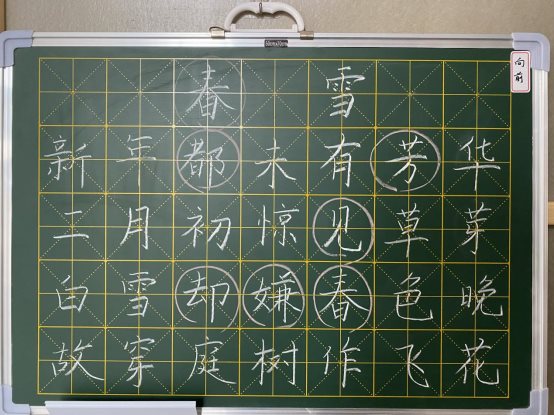 春雪
新年都未有芳华
二月初惊见草芽
白雪却嫌春色晚
故穿庭树作飞花
向前